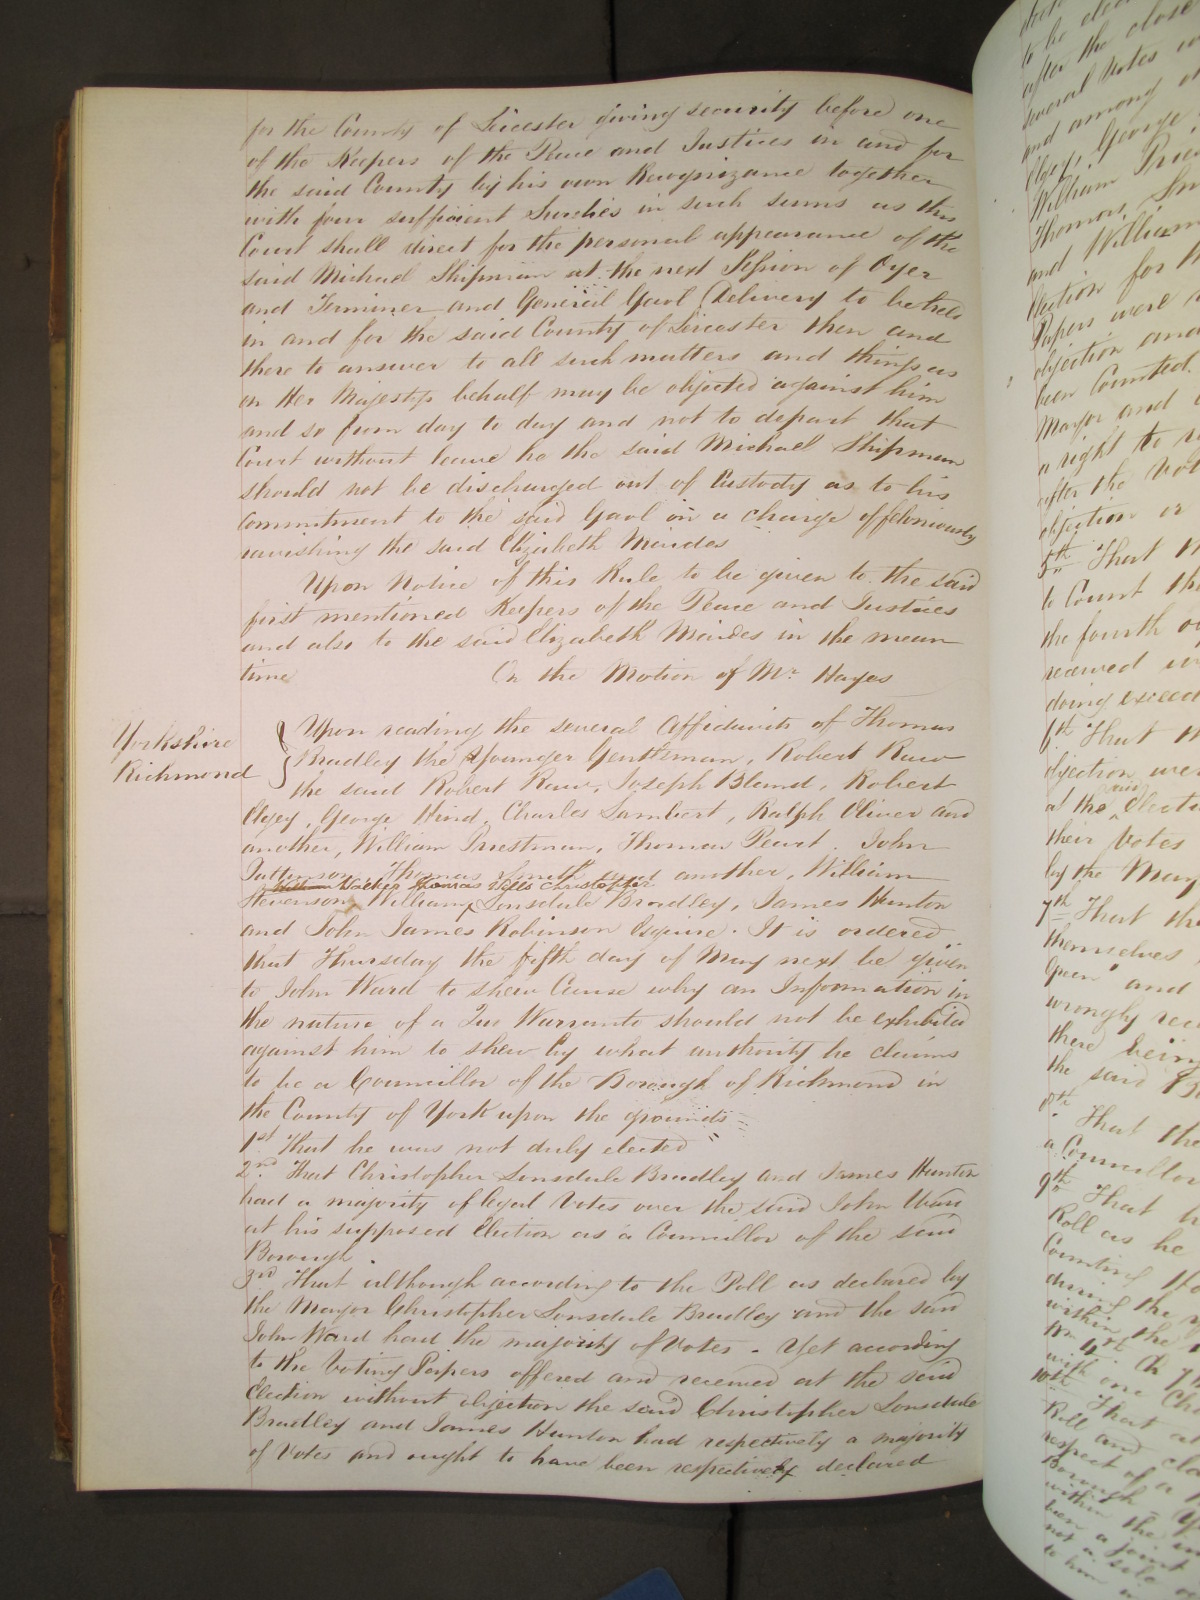 for the County of Leicester giving security before one
of the Keepers of the Peace and Justices in and for
the said County by his own Recognizance together
with four sufficient Sureties in such sums as this
Court shall direct for the personal appearance of the
said Michael Shipman at the next Session of Oyer
and Terminer and General Gaol Delivery to be held
in and for the said County of Leicester then and
there to answer to all such matters and things as
on Her Majestys behalf may be objected against him
and so from day to day and not to depart that
Court without leave he the said Michael Shipman
should not be discharged out of Custody as to his
Commitment to the said Gaol on a charge of feloniously
ravishing the said Elizabeth
Upon Notice of this Rule to be given to the said
first mentioned Keepers of the Peace and Justices
and also to the said Elizabeth in the mean
time On the Motion of Mr. Hayes
Yorkshire
Richmond
Upon reading the several Affidavits of Thomas
Bradley the Younger Gentleman, Robert Raw
the said Robert Raw, Joseph Bland, Robert
George Hind, Charles Lambert, Ralph Oliver and
another, William Priestman, Thomas Peart, John
Pattinson, Thomas Smith and another, William
Walker Thomas Wells Christopher
Stevenson, William Lonsdale Bradley, James Hunton
and John James Robinson Esquire. It is ordered
that Thursday the fifth day of May next be given
to John Ward to shew Cause why an Information in
the nature of a Quo Warranto should not be exhibited
against him to shew by what authority he claims
to be a Councillor of the Borough of Richmond in
the County of York upon the grounds
1st That he was not duly elected
2nd That Christopher Lonsdale Bradley and James Hunton
had a majority of legal Votes over the said John Ward
at his supposed Election as a Councillor of the said
Borough
3rd That although according to the Poll as declared by
the Mayor Christopher Lonsdale Bradley and the said
John Ward had the majority of Votes - Yet according
to the Voting Papers offered and received at the said
Election without objection the said Christopher Lonsdale
Bradley and James Hunton had respectively a majority
of Votes and ought to have been respectively declared
to be
after the close
several Votes
and among
George
William
Thomas
and William
Election for
Papers were
objection and
been Counted
Mayor and
a right to
after the
objection or
5th That
to Count the
the fourth
received
doing
6th That
objection were
at the said
their Votes
by the May
7th That the
themselves
and
wrongly
there being
the said
8th That the
a Councillor
9th That
Roll as he
Counting
during the
within the
with one
10th That
Roll and
respect of a
Borough
within the
been a joint
not a sole
to him